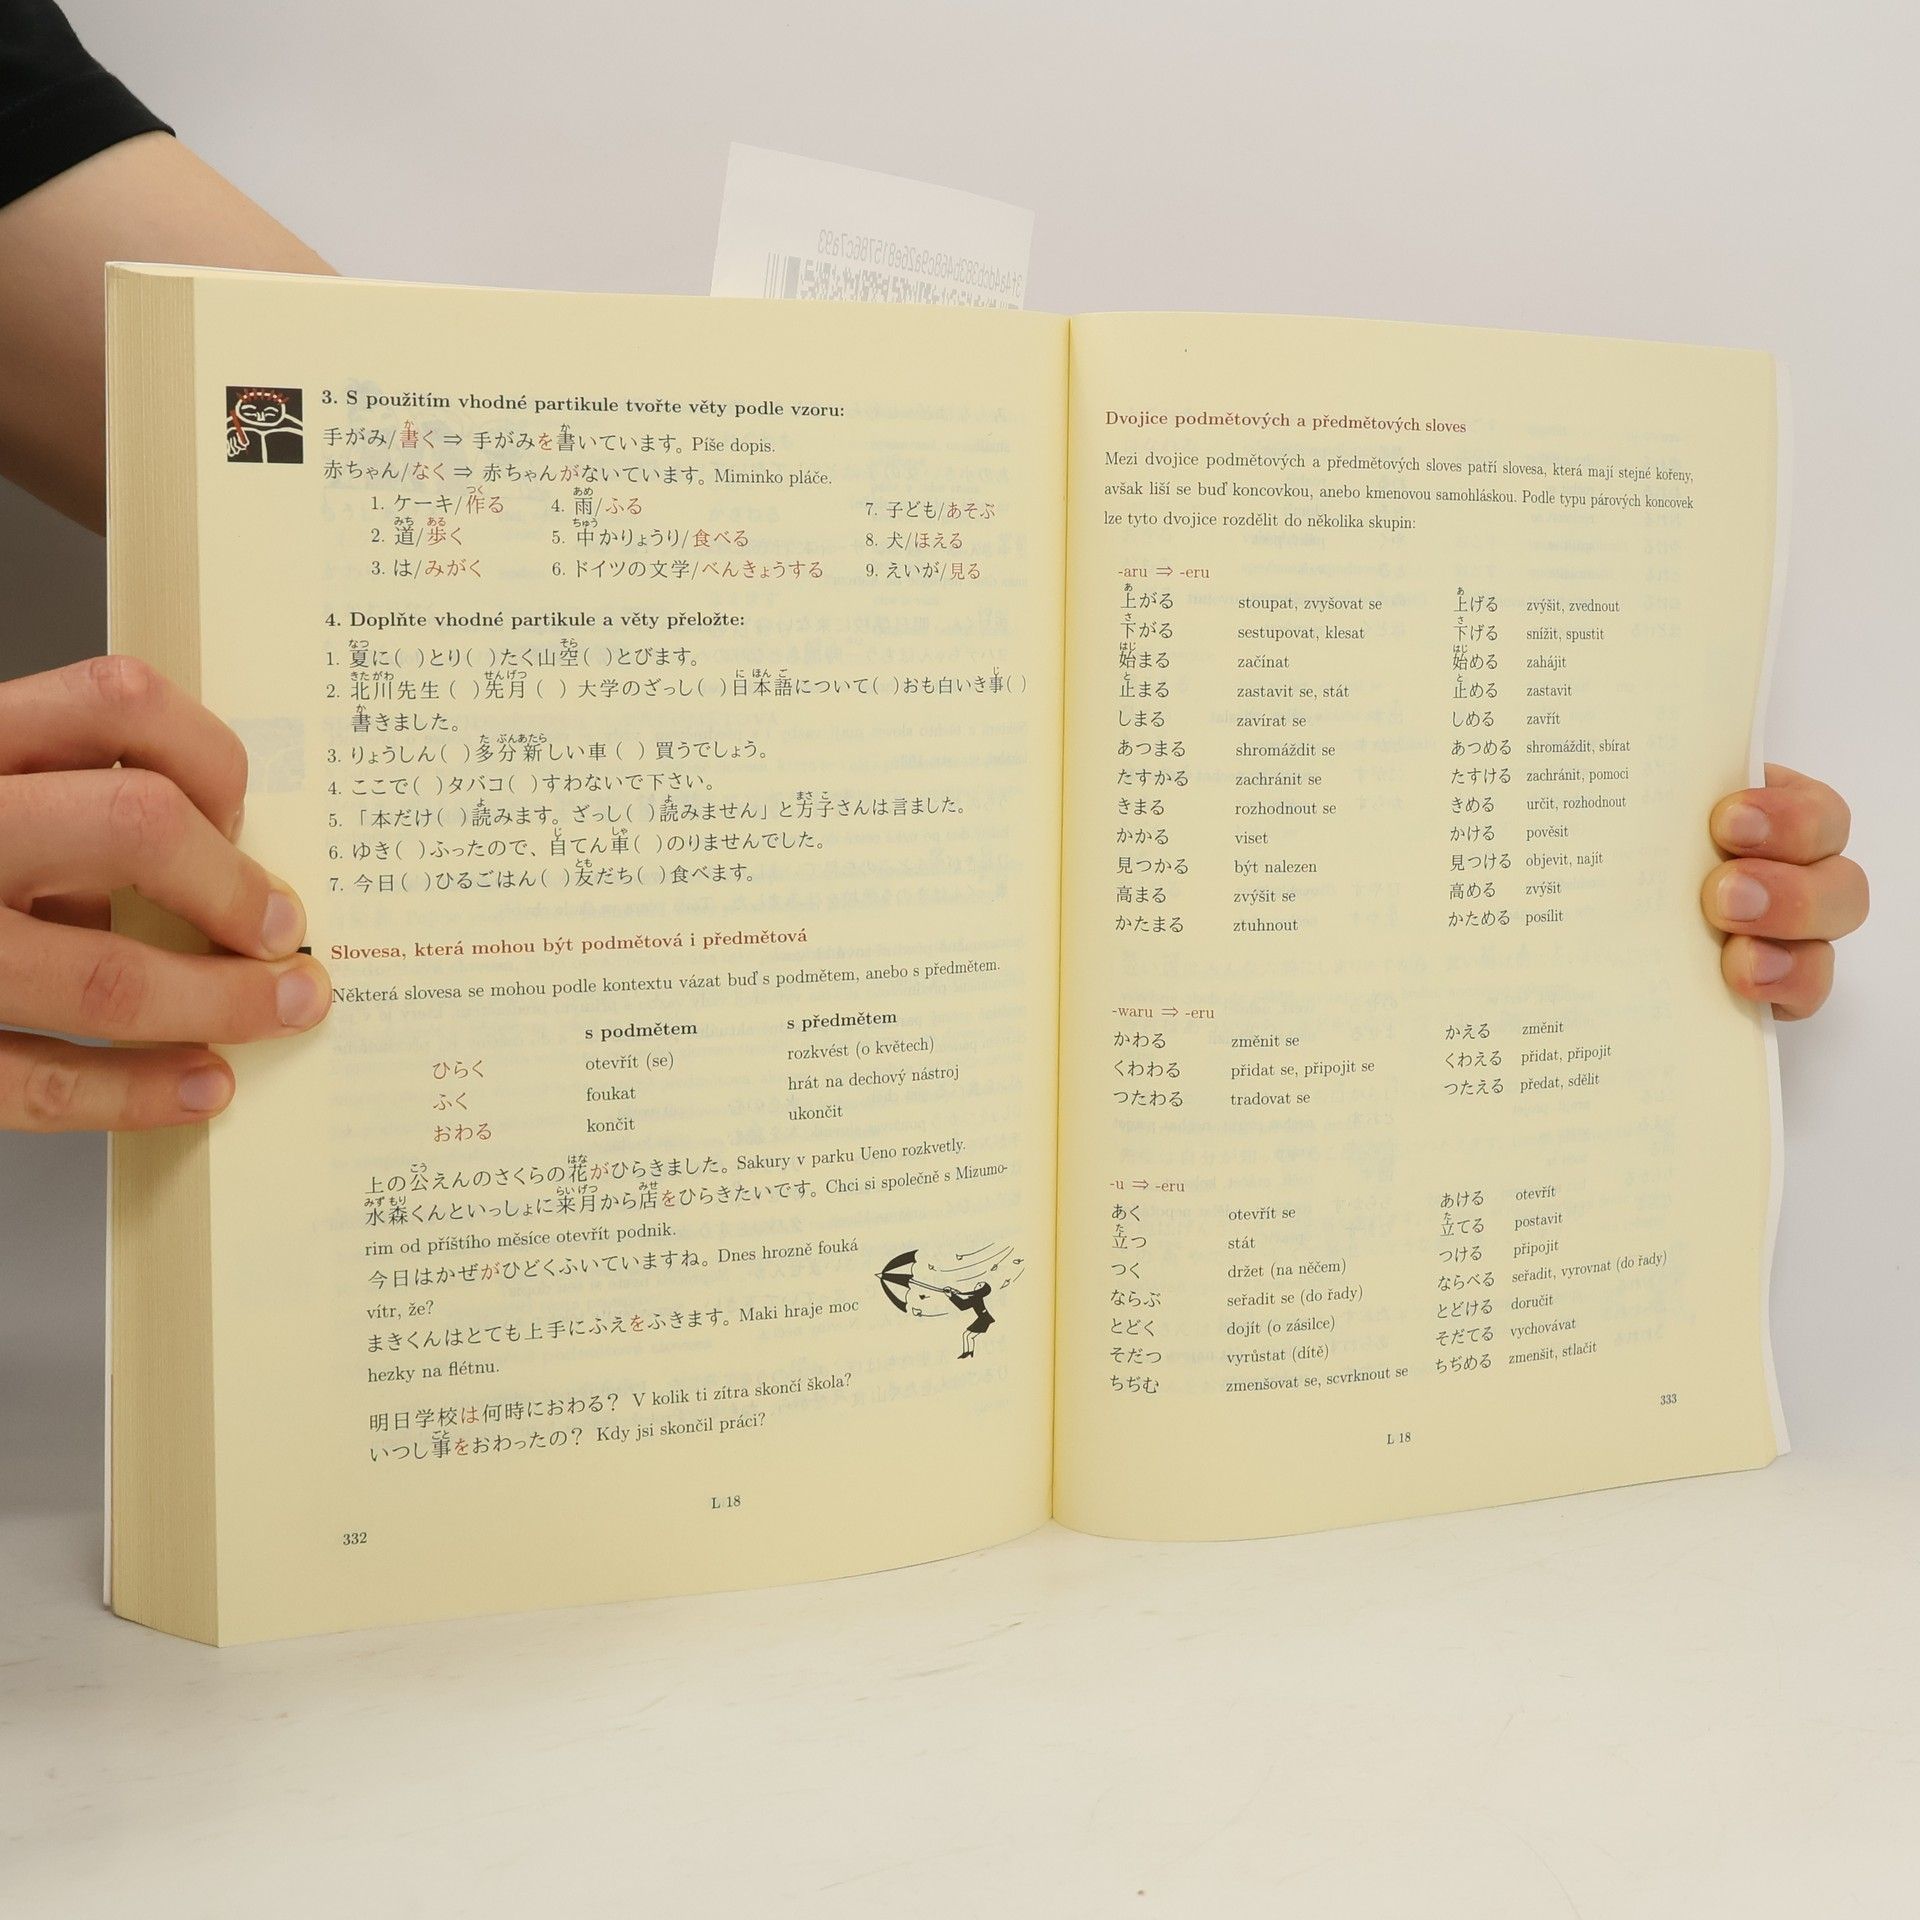 3f4a4dcb383b468c9a26e815786c7a93
3. S použitím vhodné partikule tvořte věty podle vzoru:
手がみ/書く ⇒ 手がみを書いています。Píše dopis.
赤ちゃん/なく ⇒ 赤ちゃんがないています。Miminko pláče.
1. ケーキ/作る 4. 雨/ふる 7. 子ども/あそぶ
2. 道/歩く 5. 中かりょうり/食べる 8. 犬/ほえる
3. は/みがく 6. ドイツの文学/べんきょうする 9. えいが/見る
4. Doplňte vhodné partikule a věty přeložte:
1. 夏に( )とり( )たく山空( )とびます。
2. 北川先生( )先月( )大学のざっし( )日本語について( )おも白いき事( )
書きました。
3. りょうしん( )多分新しい車( )買うでしょう。
4. ここで( )タバコ( )すわないで下さい。
5. 「本だけ( )読みます。ざっし( )読みません」と方子さんは言ました。
6. ゆき( )ふったので、自てん車( )のりませんでした。
7. 今日( )ひるごはん( )友だち( )食べます。
Slovesa, která mohou být podmětová i předmětová
Některá slovesa se mohou podle kontextu vázat buď s podmětem, anebo s předmětem.
s podmětem s předmětem
ひらく otevřít (se) rozkvést (o květech)
ふく foukat hrát na dechový nástroj
おわる končit ukončit
上の公えんのさくらの花がひらきました。Sakury v parku Ueno rozkvetly.
水森くんといっしょに来月から店をひらきたいです。Chci si společně s Mizumo-
rim od příštího měsíce otevřít podnik.
今日はかぜがひどくふいていますね。Dnes hrozně fouká
vítr, že?
まきくんはとても上手にふえをふきます。Maki hraje moc
hezky na flétnu.
明日学校は何時におわる？ V kolik ti zítra skončí škola?
いつし事をおわったの？ Kdy jsi skončil práci?
L 18
332
Dvojice podmětových a předmětových sloves
Mezi dvojice podmětových a předmětových sloves patří slovesa, která mají stejné kořeny,
avšak liší se buď koncovkou, anebo kmenovou samohláskou. Podle typu párových koncovek
lze tyto dvojice rozdělit do několika skupin:
-aru ⇒ -eru
上がる stoupat, zvyšovat se 上げる zvýšit, zvednout
下がる sestupovat, klesat 下げる snížit, spustit
始まる začínat 始める zahájit
止まる zastavit se, stát 止める zastavit
しまる zavírat se しめる zavřít
あつまる shromáždit se あつめる shromáždit, sbírat
たすかる zachránit se たすける zachránit, pomoci
きまる rozhodnout se きめる určit, rozhodnout
かかる viset かける pověsit
見つかる být nalezen 見つける objevit, najít
高まる zvýšit se 高める zvýšit
かたまる ztuhnout かためる posílit
-waru ⇒ -eru
かわる změnit se かえる změnit
くわわる přidat se, připojit se くわえる přidat, připojit
つたわる tradovat se つたえる předat, sdělit
-u ⇒ -eru
あく otevřít se あける otevřít
立つ stát 立てる postavit
つく držet (na něčem) つける připojit
ならぶ seřadit se (do řady) ならべる seřadit, vyrovnat (do řady)
とどく dojít (o zásilce) とどける doručit
そだつ vyrůstat (dítě) そだてる vychovávat
ちぢむ zmenšovat se, scvrknout se ちぢめる zmenšit, stlačit
333
L 18